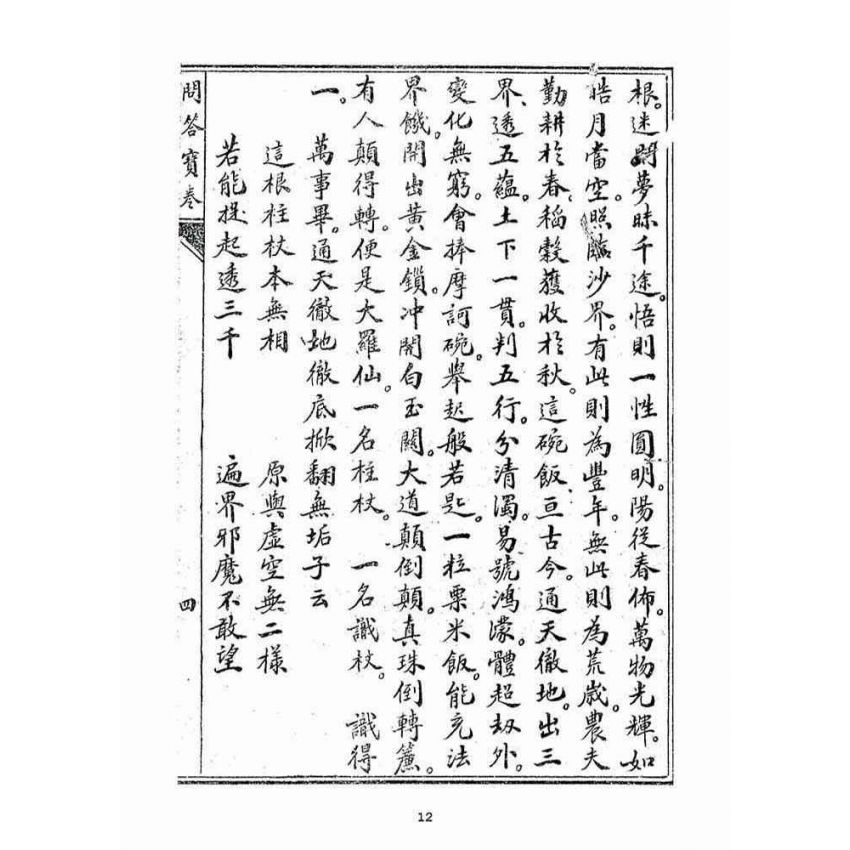 根。迷則夢昧千途。悟則一性圓明。陽從春佈。萬物光輝。如
皓月當空。照臨沙界。有此則為豐年。無此則為荒歲。農夫
勤耕於春。稻穀獲收於秋。這碗飯亘古今。通天徹地。出三
界。透五蘊。土下一貫。判五行。分清濁。易號鴻濛。體超劫外。
變化無窮。會捧摩訶碗。舉起般若匙。一粒粟米飯。能充法
界饑。開出黃金鎖。冲開白玉關。大道顛倒顛。真珠倒轉簾。
有人顛得轉。便是大羅仙。一名柱杖。 一名識杖。 識得
一。萬事畢。通天徹地徹底掀翻無垢子云
這根柱杖本無相 原與虛空無二樣
若能提起透三千 遍界邪魔不敢望
問答寶卷 四
12